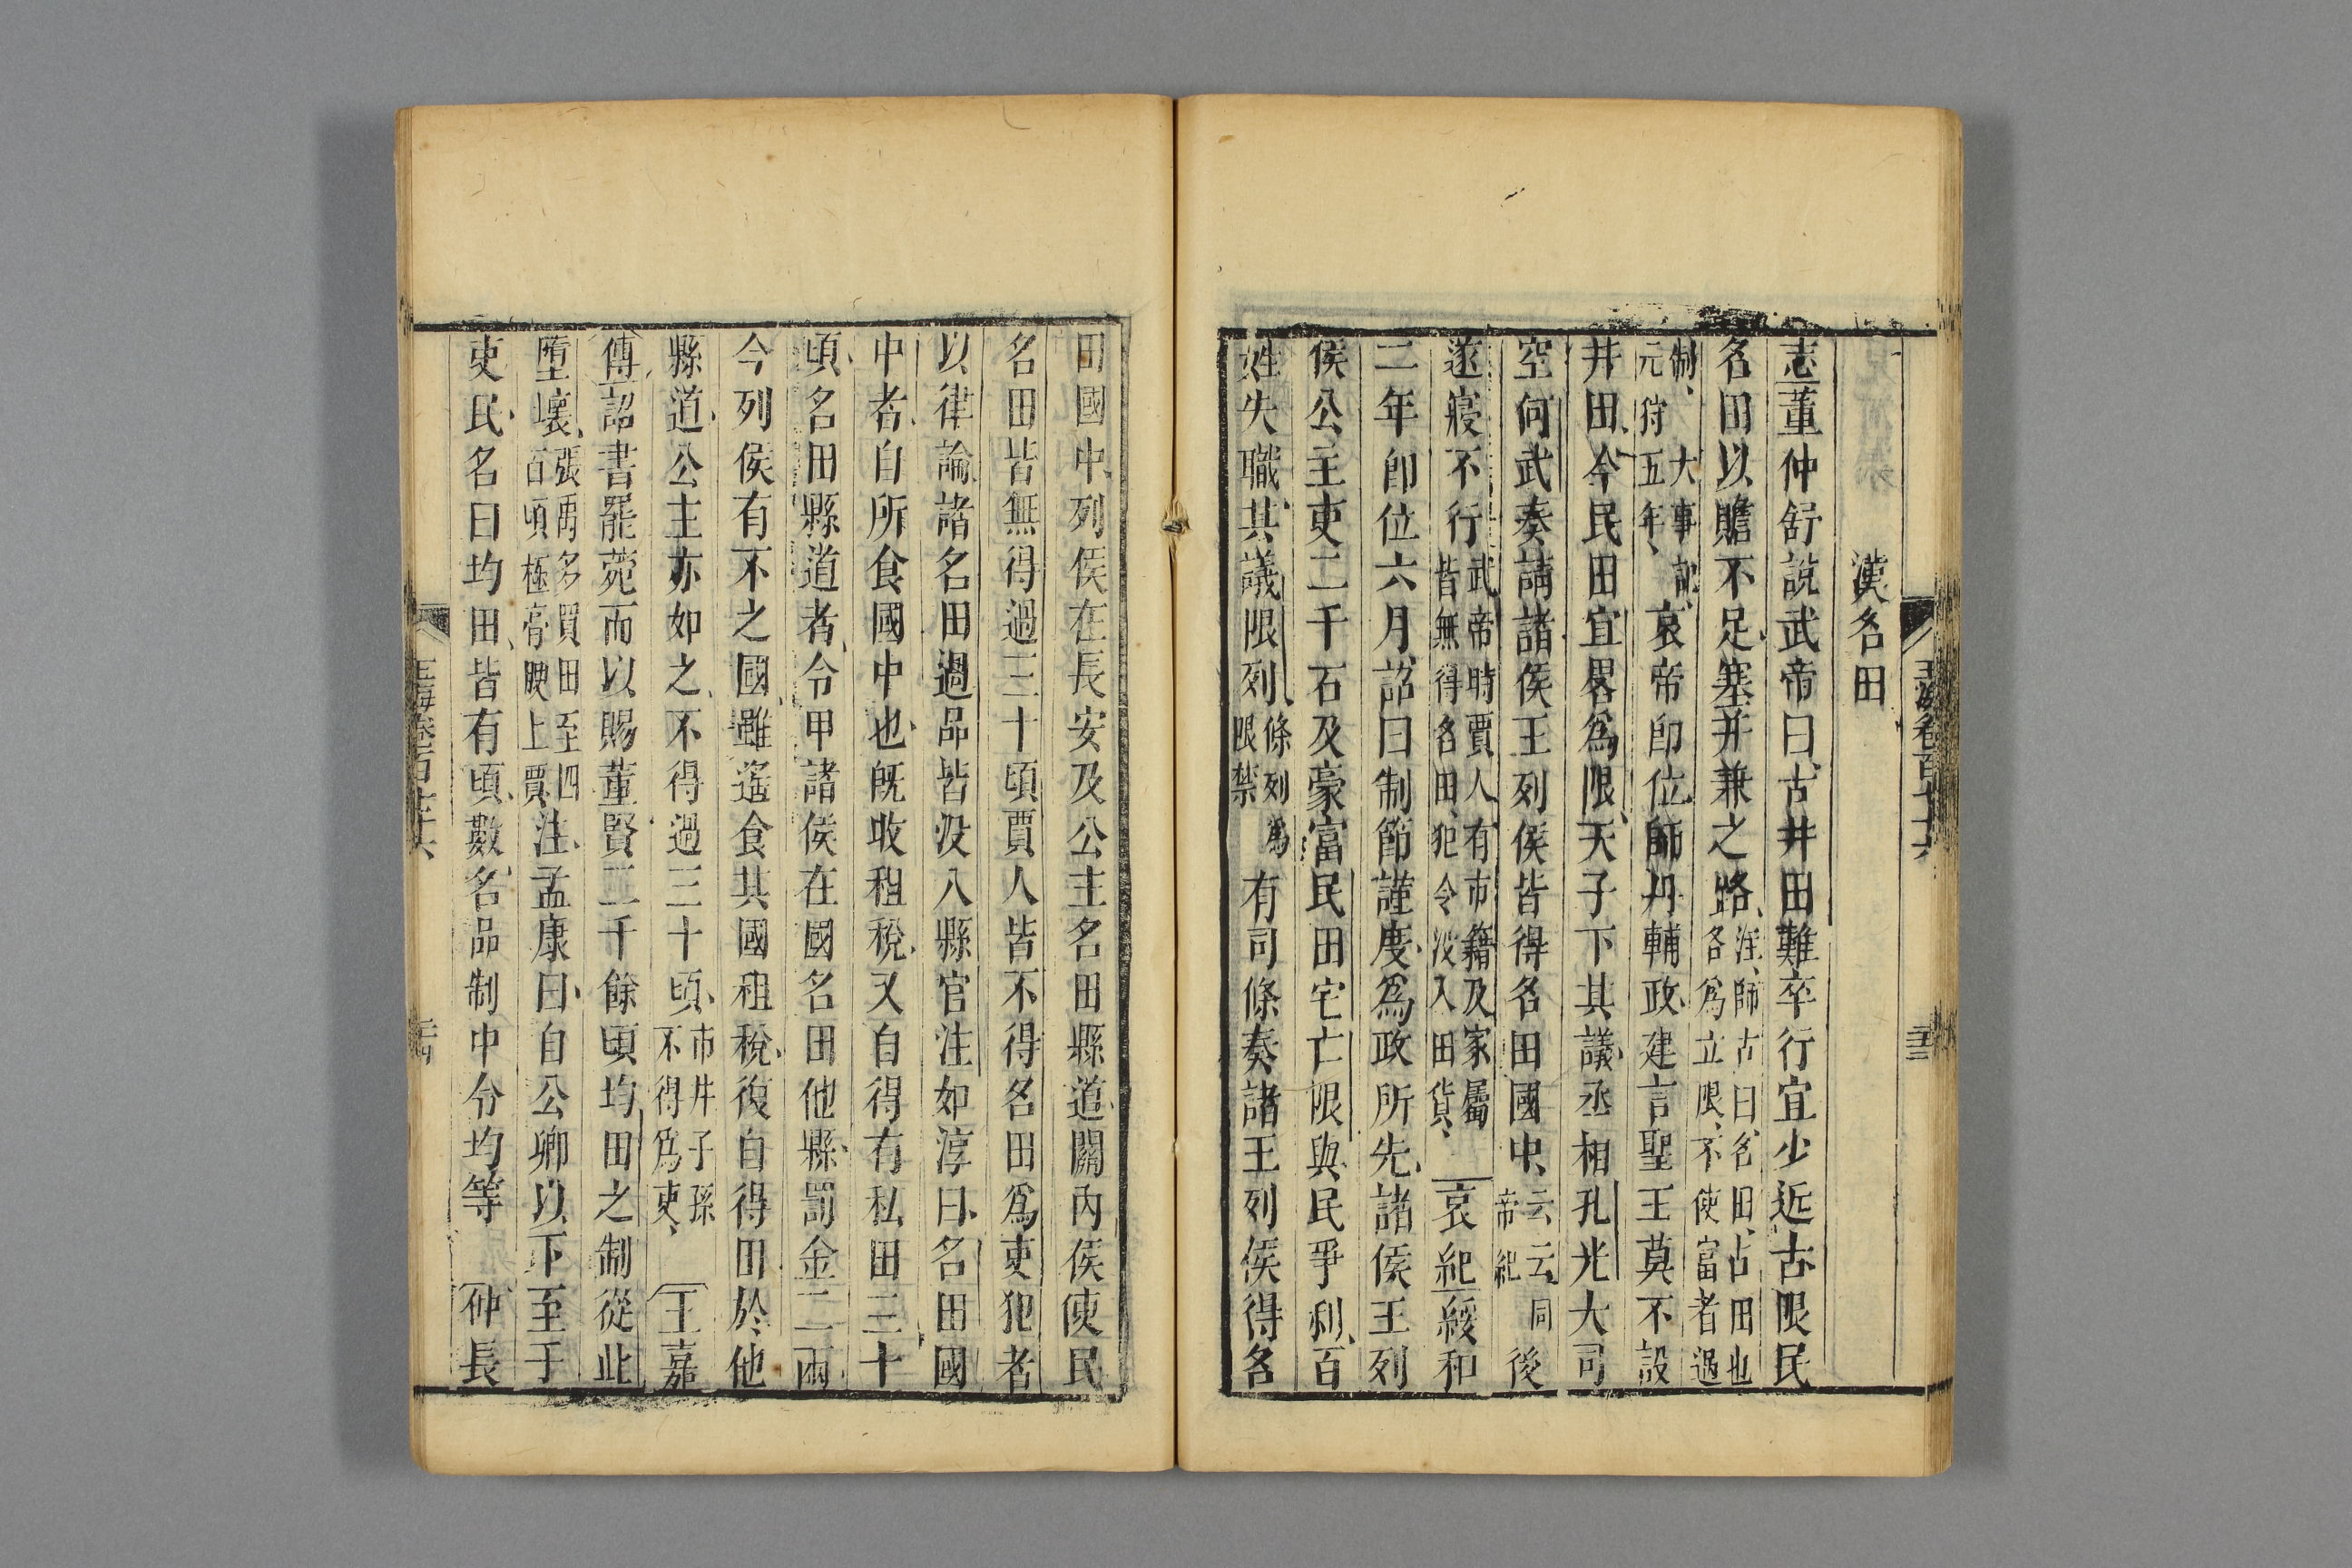 玉海卷百七十六
漢名田
志董仲舒說武帝曰古井田難卒行宜少近古限民
名田以贍不足塞并兼之路注師古曰名田占田也各爲立限不使富者過
制大事記元狩五年哀帝卽位師丹輔政建言聖王莫不設
井田今民田宜畧爲限天子下其議丞相孔光大司
空何武奏請諸侯王列侯皆得名田國中云云同帝紀後
遂寢不行武帝時賈人有市籍及家屬皆無得名田犯令沒入田貨哀紀綏和
二年卽位六月詔曰制節謹度爲政所先諸侯王列
侯公主吏二千石及豪富民田宅亡限與民爭利百
姓失職其議限列條列爲限禁有司條奏諸王列侯得名
田國中列侯在長安及公主名田縣道關內侯吏民
名田皆無得過三十頃賈人皆不得名田爲吏犯者
以律論諸名田過品皆沒入縣官注如淳曰名田國
中者自所食國中也旣收租稅又自得有私田三十
頃名田縣道者令甲諸侯在國名田他縣罰金二兩
今列侯有不之國雖遙食其國租稅復自得田於他
縣道公主亦如之不得過三十頃市井子孫不得爲吏王嘉
傳詔書罷菀而以賜董賢二千餘頃均田之制從此
墮壞張禹多買田至四百頃極膏腴上賈注孟康曰自公卿以下至于
吏民名曰均田皆有頃數名品制中令均等仲長